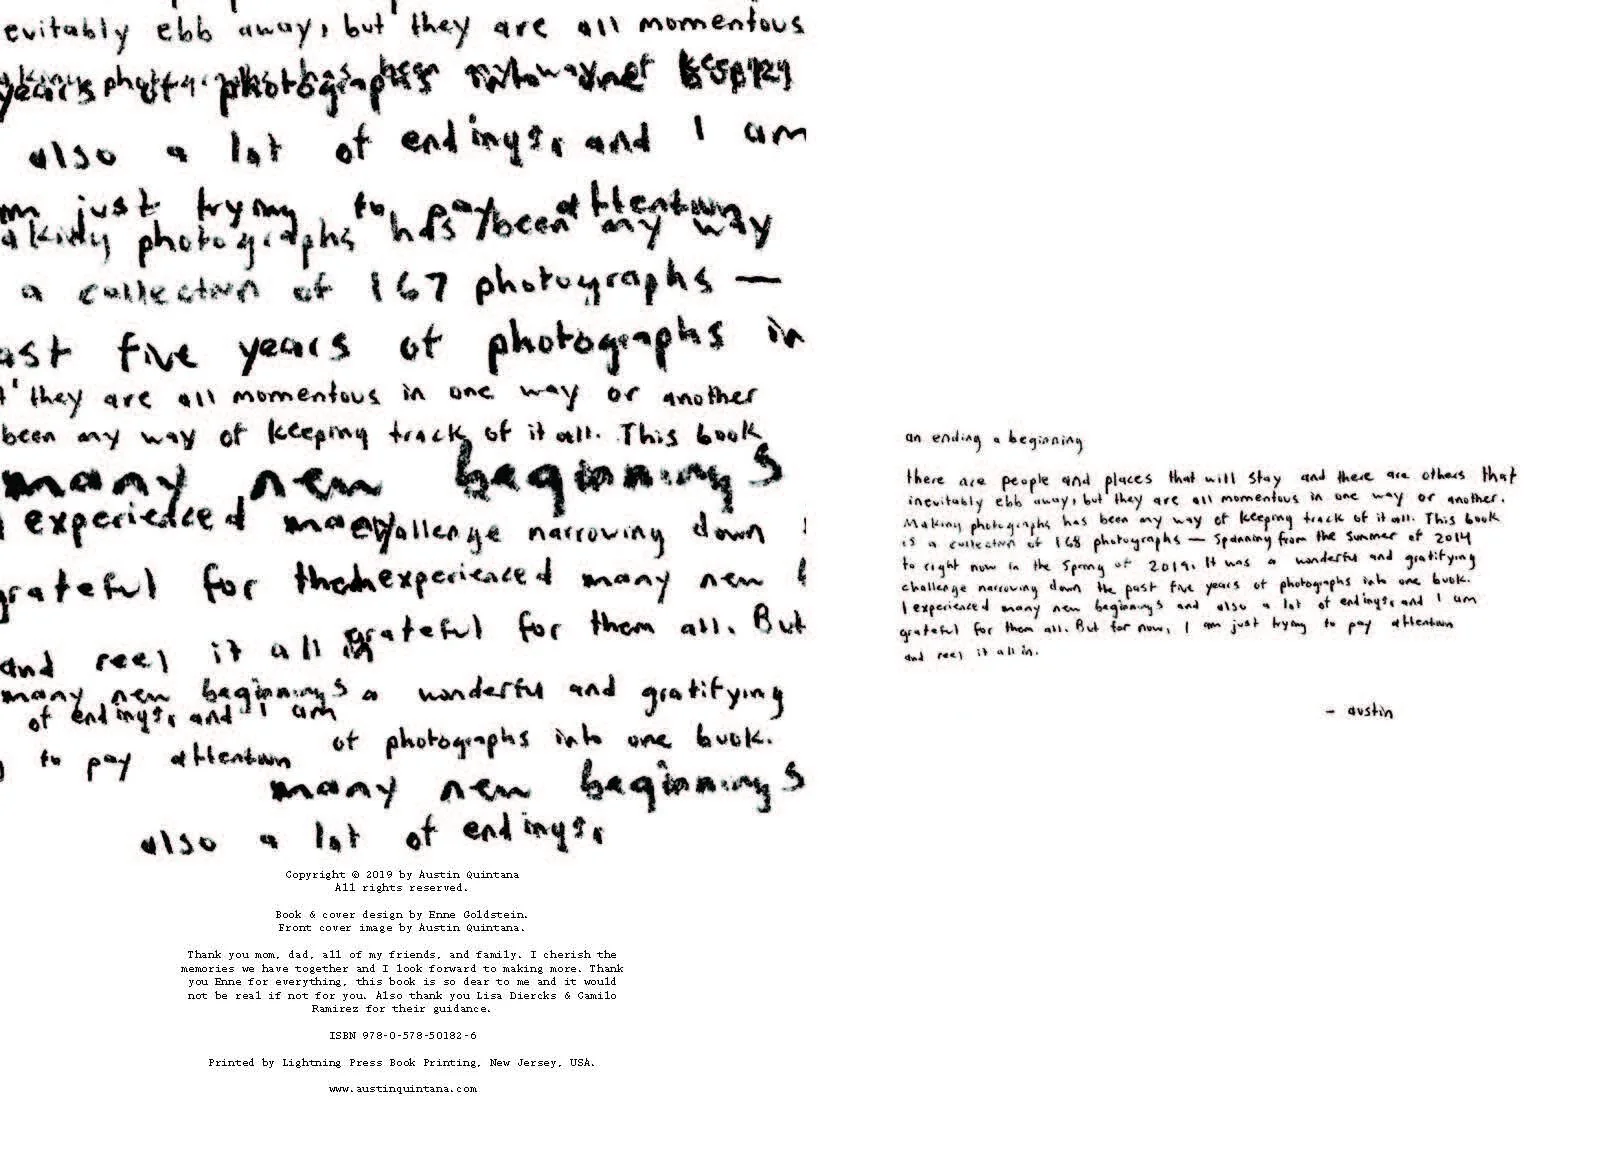 evitably ebb away, but they are all momentous
years of photographs into one
also a lot of endings, and I am
m just trying to pay attention
aking photographs has been my way
a collection of 167 photographs —
ast five years of photographs in
t they are all momentous in one way or another
been my way of keeping track of it all. This book
many new beginnings
I experienced many
challenge narrowing down
grateful for them
experienced many new
grateful for them all. But
and reel it all in
many new beginnings
a wonderful and gratifying
of endings, and I am
of photographs into one book.
to pay attention
many new beginnings
also a lot of endings,
Copyright © 2019 by Austin Quintana
All rights reserved.
Book & cover design by Enne Goldstein.
Front cover image by Austin Quintana.
Thank you mom, dad, all of my friends, and family. I cherish the
memories we have together and I look forward to making more. Thank
you Enne for everything, this book is so dear to me and it would
not be real if not for you. Also thank you Lisa Diercks & Camilo
Ramirez for their guidance.
ISBN 978-0-578-50182-6
Printed by Lightning Press Book Printing, New Jersey, USA.
www.austinquintana.com
an ending a beginning
there are people and places that will stay and there are others that
inevitably ebb away, but they are all momentous in one way or another.
Making photographs has been my way of keeping track of it all. This book
is a collection of 168 photographs — spanning from the summer of 2014
to right now in the Spring of 2019. It was a wonderful and gratifying
challenge narrowing down the past five years of photographs into one book.
I experienced many new beginnings and also a lot of endings, and I am
grateful for them all. But for now, I am just trying to pay attention
and reel it all in.
- austin